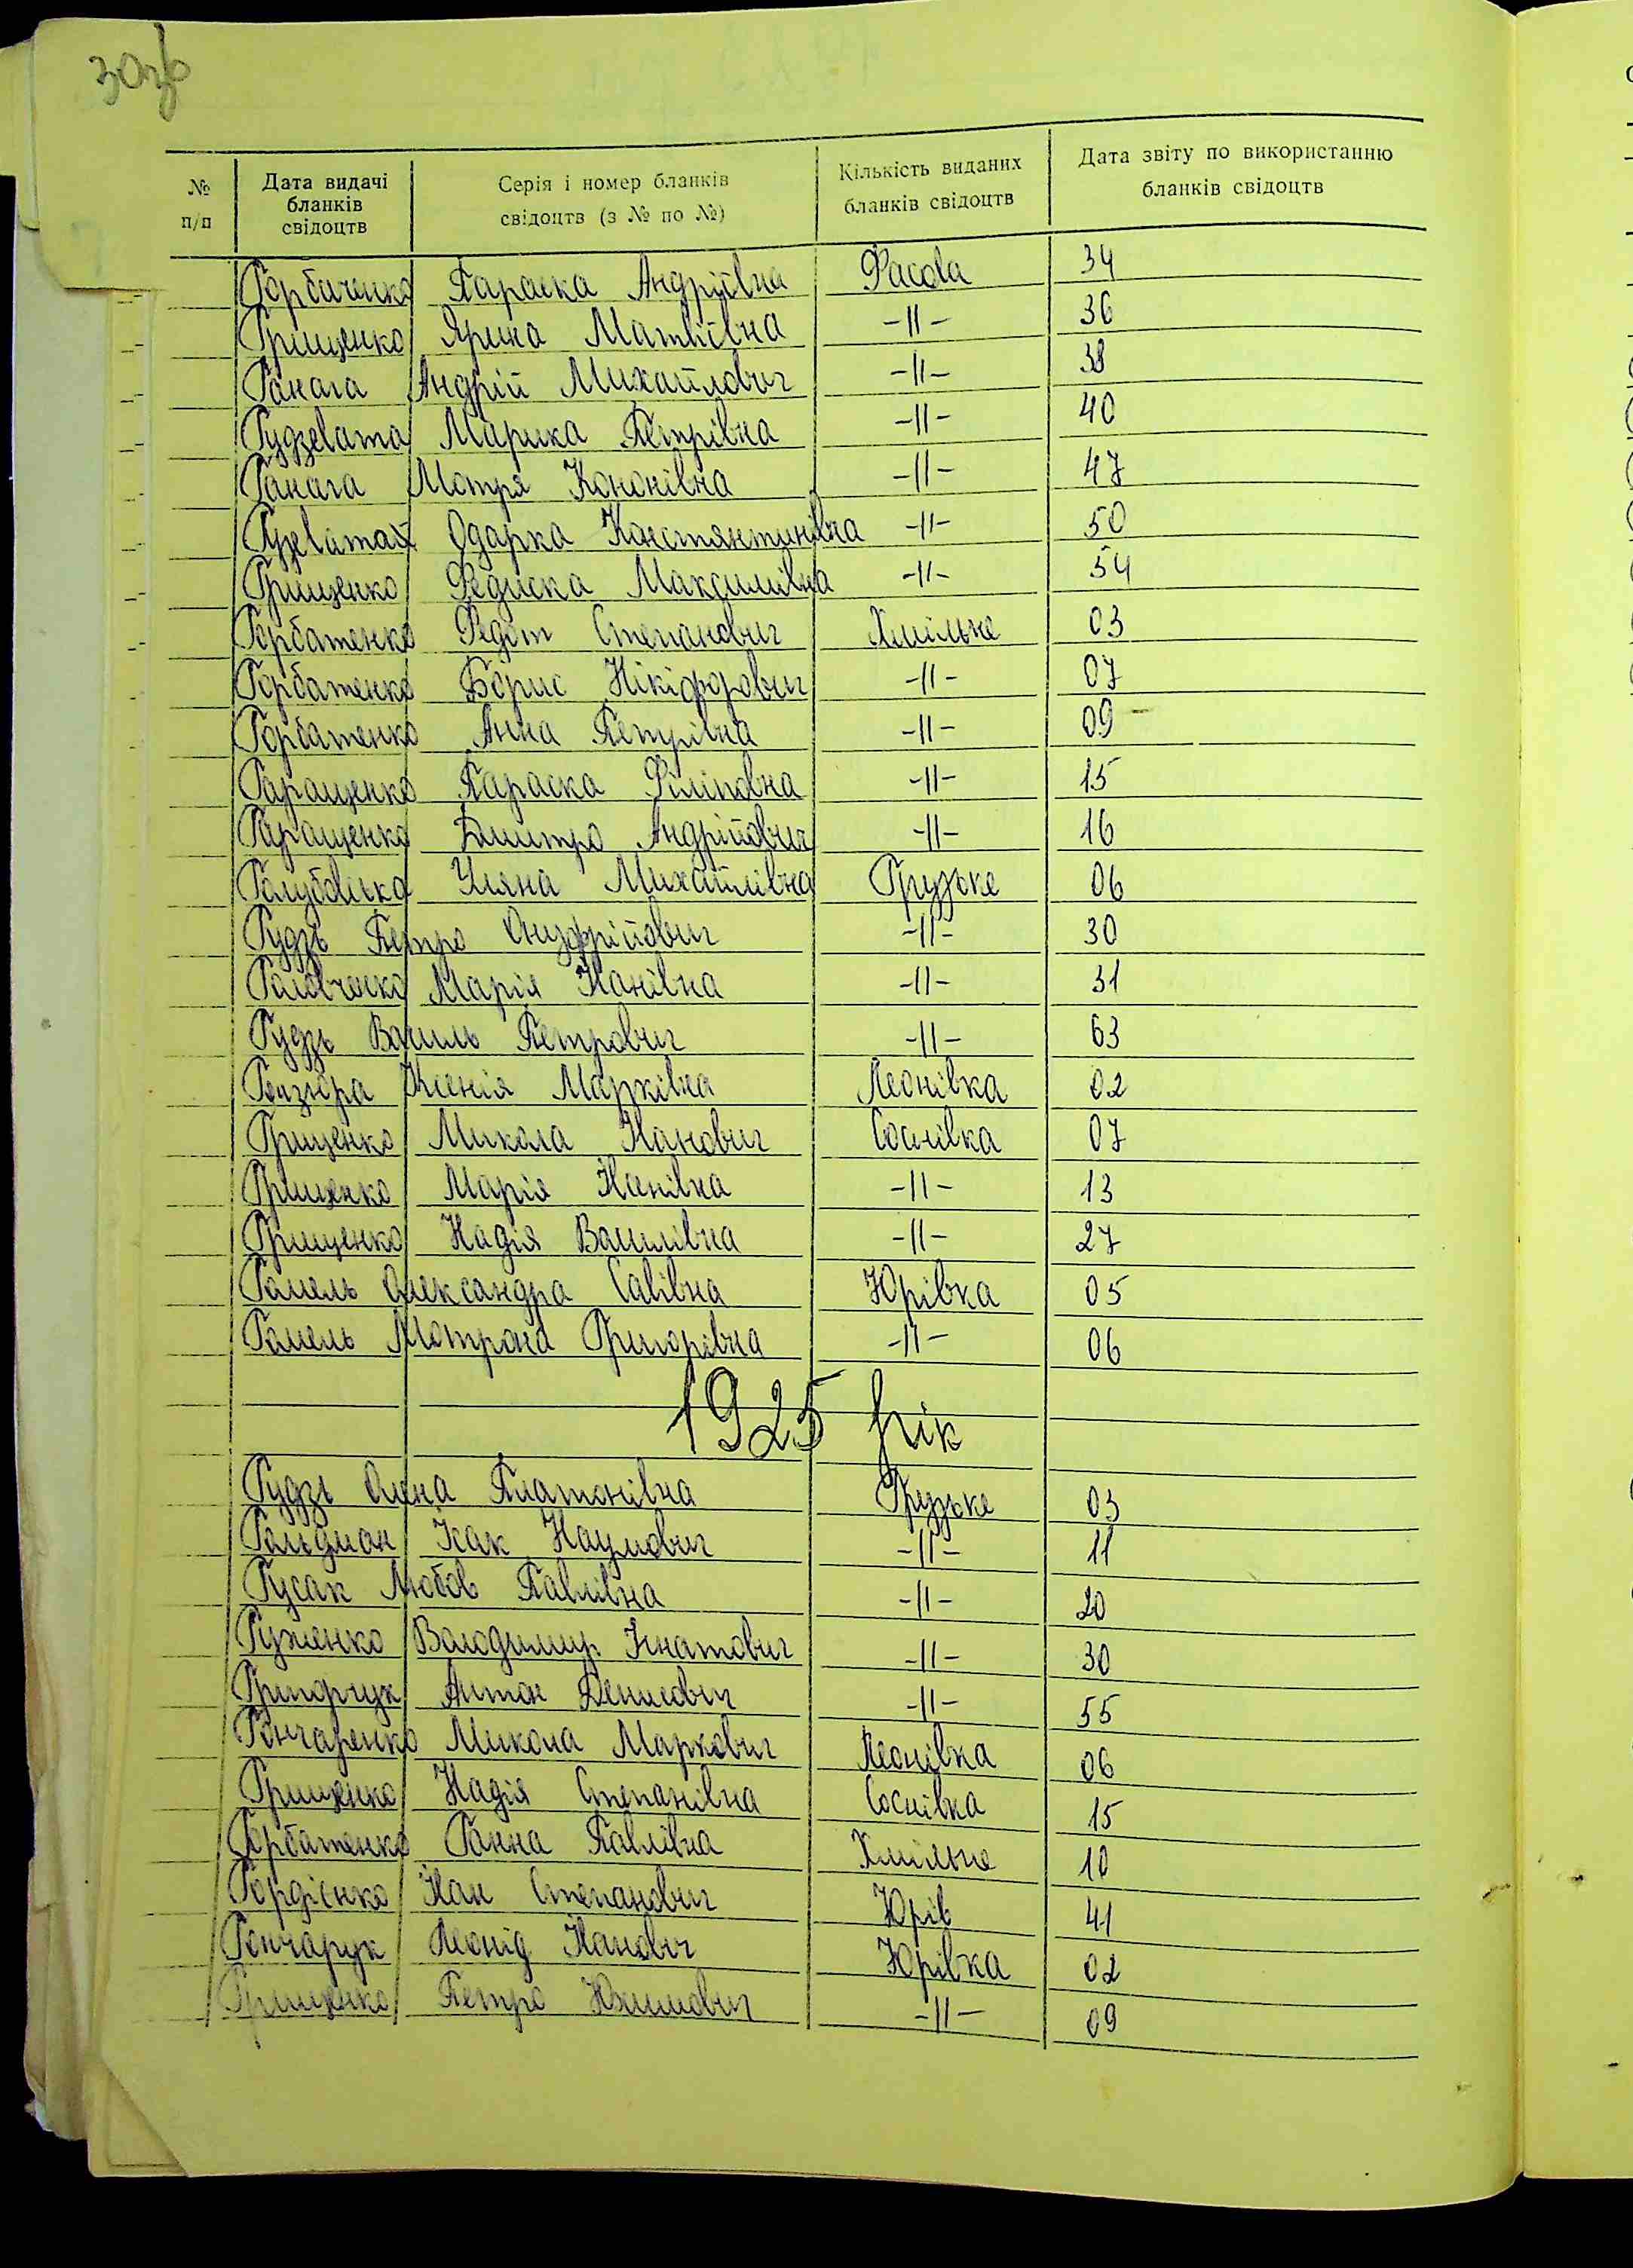 30зв
№ п/п Дата видачі бланків свідоцтв Серія і номер бланків свідоцтв (з № по №) Кількість виданих бланків свідоцтв Дата звіту по використанню бланків свідоцтв
Горбаченко Параска Андріївна Фасова 34
Грищенко Ярина Матвіївна -||- 36
Ганага Андрій Михайлович -||- 38
Гудзевата Марика Петрівна -||- 40
Ганага Мотря Кононівна -||- 47
Одарка Константинівна -||- 50
Грищенко Федиска Максимівна -||- 54
Горбатенко Федот Степанович Хмільне 03
Горбатенко Борис Нікіфорович -||- 07
Горбатенко Анна Петрівна -||- 09
Гаращенко Параска Філіповна -||- 15
Гаращенко Дмитро Андрійович -||- 16
Голубовська Уляна Михайлівна Грузьке 06
Гудзь Петро Онуфрійович -||- 30
Головченко Марія Іванівна -||- 31
Гудзь Василь Петрович -||- 63
Ксенія Марківна Леонівка 02
Грищенко Микола Іванович Соснівка 07
Грищенко Марія Іванівна -||- 13
Грищенко Надія Василівна -||- 27
Гомель Олександра Савівна Юрівка 05
Гомель Мотрона Григорівна -||- 06
1925 рік
Гудзь Олена Платонівна Грузьке 03
Гольдман Ісак Наумович -||- 11
Гусак Любов Павлівна -||- 20
Гуменко Володимир Ігнатович -||- 30
Григорчук Антон Денисович -||- 55
Гончаренко Микола Маркович Леонівка 06
Грищенко Надія Степанівна Соснівка 15
Горбатенко Ганна Павлівна Хмільне 10
Гордієнко Іван Степанович Юрів 41
Гончарук Леонід Іванович Юрівка 02
Грищенко Петро Юхимович -||- 09